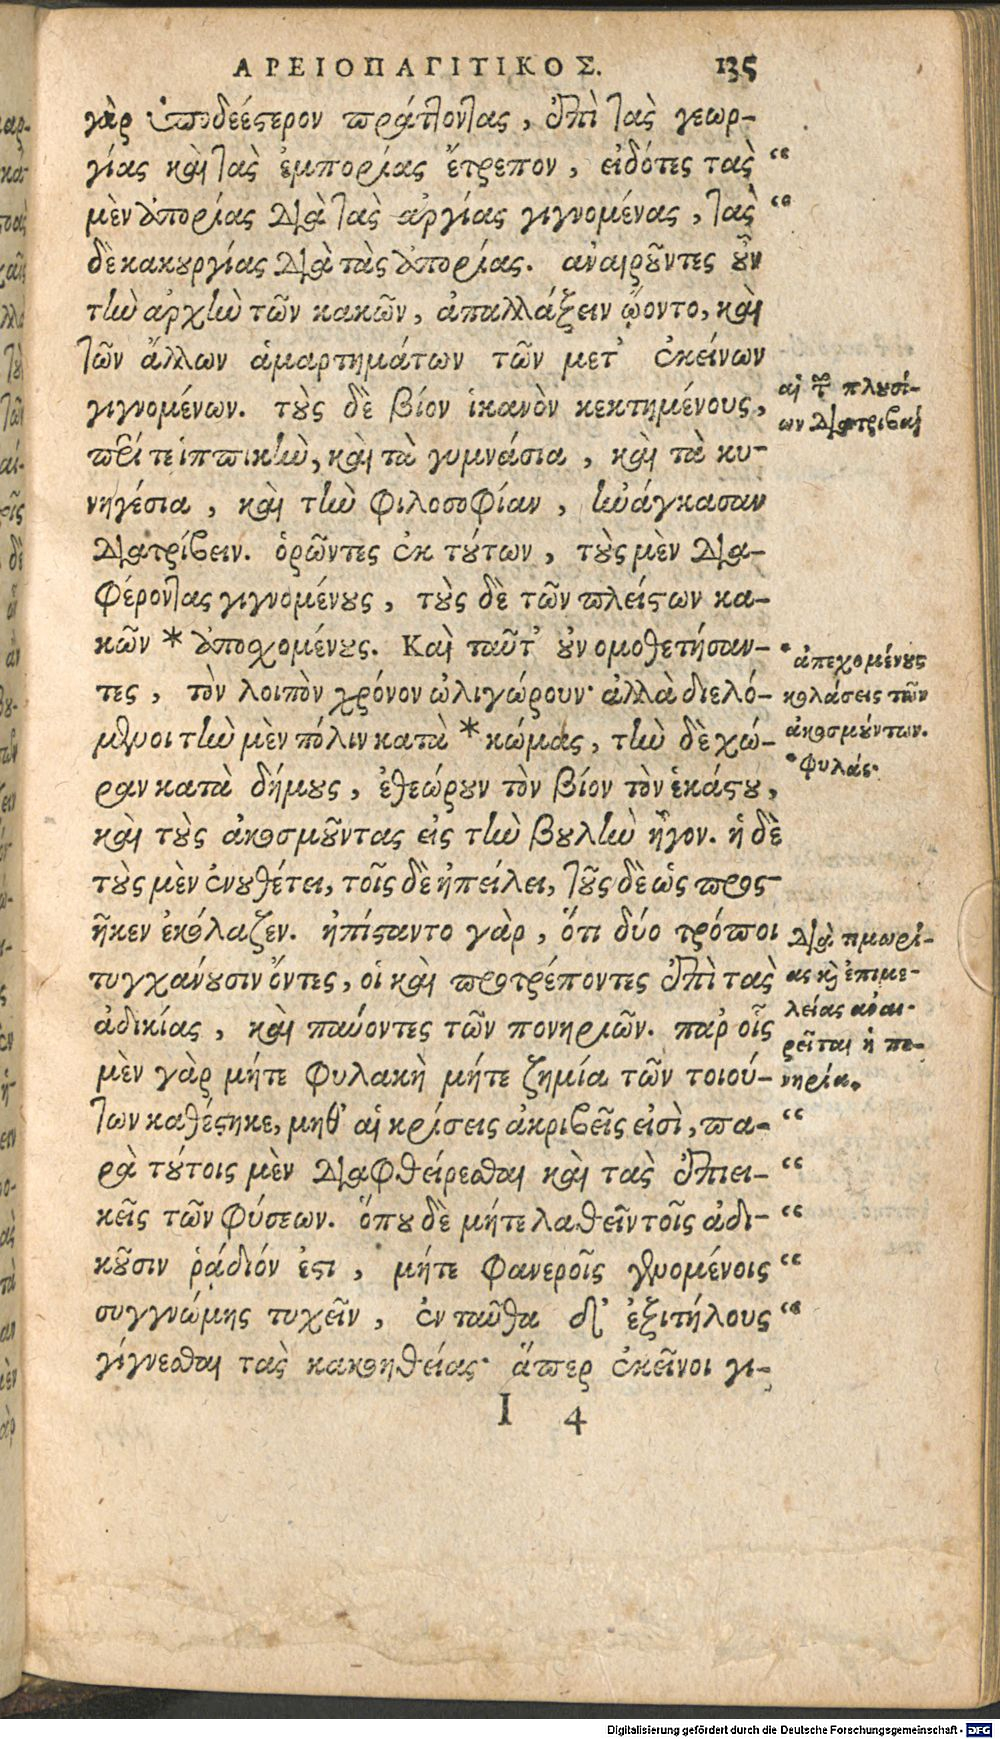 ΑΡΕΙΟΠΑΓΙΤΙΚΟΣ. 135
γὰρ ὑποδεέστερον πράττοντας, ἐπὶ τὰς γεωρ-
γίας καὶ τὰς ἐμπορίας ἔτρεπον, εἰδότες τὰς “
μὲν ἀπορίας διὰ τὰς ἀργίας γιγνομένας, τὰς “
δὲ κακουργίας διὰ τὰς ἀπορίας. ἀναιροῦντες οὖν
τὴν ἀρχὴν τῶν κακῶν, ἀπαλλάξειν ᾤοντο, καὶ
τῶν ἄλλων ἁμαρτημάτων τῶν μετ’ ἐκείνων
γιγνομένων. τοὺς δὲ βίον ἱκανὸν κεκτημένους,
περί τε ἱππικὴν, καὶ τὰ γυμνάσια, καὶ τὰ κυ-
νηγέσια, καὶ τὴν φιλοσοφίαν, ἠνάγκασαν
διατρίβειν. ὁρῶντες ἐκ τούτων, τοὺς μὲν δια-
φέροντας γιγνομένους, τοὺς δὲ τῶν πλείστων κα-
κῶν * ἀποχομένους. Καὶ ταῦτ’ οὐ νομοθετήσαν-
τες, τὸν λοιπὸν χρόνον ὠλιγώρουν· ἀλλὰ διελό-
μενοι τὴν μὲν πόλιν κατὰ * κώμας, τὴν δὲ χώ-
ραν κατὰ δήμους, ἐθεώρουν τὸν βίον τὸν ἑκάστου,
καὶ τοὺς ἀκοσμοῦντας εἰς τὴν βουλὴν ἦγον. ἡ δὲ
τοὺς μὲν ἐνουθέτει, τοῖς δὲ ἠπείλει, τοῦς δὲ ὡς προς-
ῆκεν ἐκόλαζεν. ἠπίσταντο γὰρ, ὅτι δύο τρόποι
τυγχάνουσιν ὄντες, οἱ καὶ προτρέποντες ἐπὶ τὰς
ἀδικίας, καὶ παύοντες τῶν πονηριῶν. παρ’ οἷς
μὲν γὰρ μήτε φυλακὴ μήτε ζημία τῶν τοιού-
των καθέστηκε, μηθ’ αἱ κρίσεις ἀκριβεῖς εἰσὶ, πα- “
ρὰ τούτοις μὲν διαφθείρεσθαι καὶ τὰς ἐπιει- “
κεῖς τῶν φύσεων. ὅπου δὲ μήτε λαθεῖν τοῖς ἀδι- “
κοῦσιν ῥᾴδιόν ἐστι, μήτε φανεροῖς γενομένοις “
συγγνώμης τυχεῖν, ἐνταῦθα δ’ ἐξιτήλους “
γίγνεσθαι τὰς κακοηθείας· ἅπερ ἐκεῖνοι γι-
I 4
αἱ τῶν πλουσί-
ων διατριβαὶ
* ἀπεχομένους
κολάσεις τῶν
ἀκοσμούντων.
* φυλάς·
Διὰ τιμωρί-
ας καὶ ἐπιμε-
λείας ἀναι-
ρεῖται ἡ πο-
νηρία.
Digitalisierung gefördert durch die Deutsche Forschungsgemeinschaft - DFG